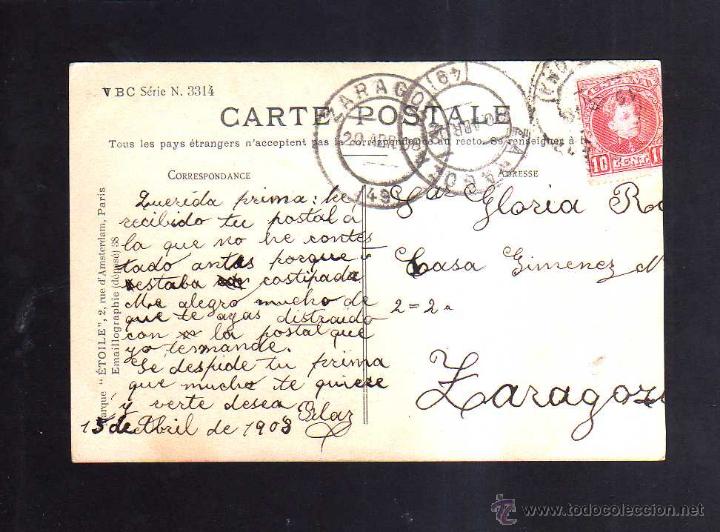 VBC Série N. 3314
CARTE POSTALE
Tous les pays étrangers n'acceptent pas la correspondance au recto. Se renseigner à
CORRESPONDANCE
ADRESSE
Querida prima: he
recibido tu postal a
la que no he contes
tado antes porque
estaba costipada
Me alegro mucho de
que te ayas distraido
con la postal que
yo temande.
Se despide tu prima
que mucho te quiere
y verte desea Pilar
15 de Abril de 1908
Gloria
Casa Gimenez
2=2a
Zaragoz
Marque "ÉTOILE", 2, rue d'Amsterdam, Paris
Emaillographie (déposé) 38
ZARAGOZA
20 ABR 08
(49)
10 CENT. 10
www.todocoleccion.net